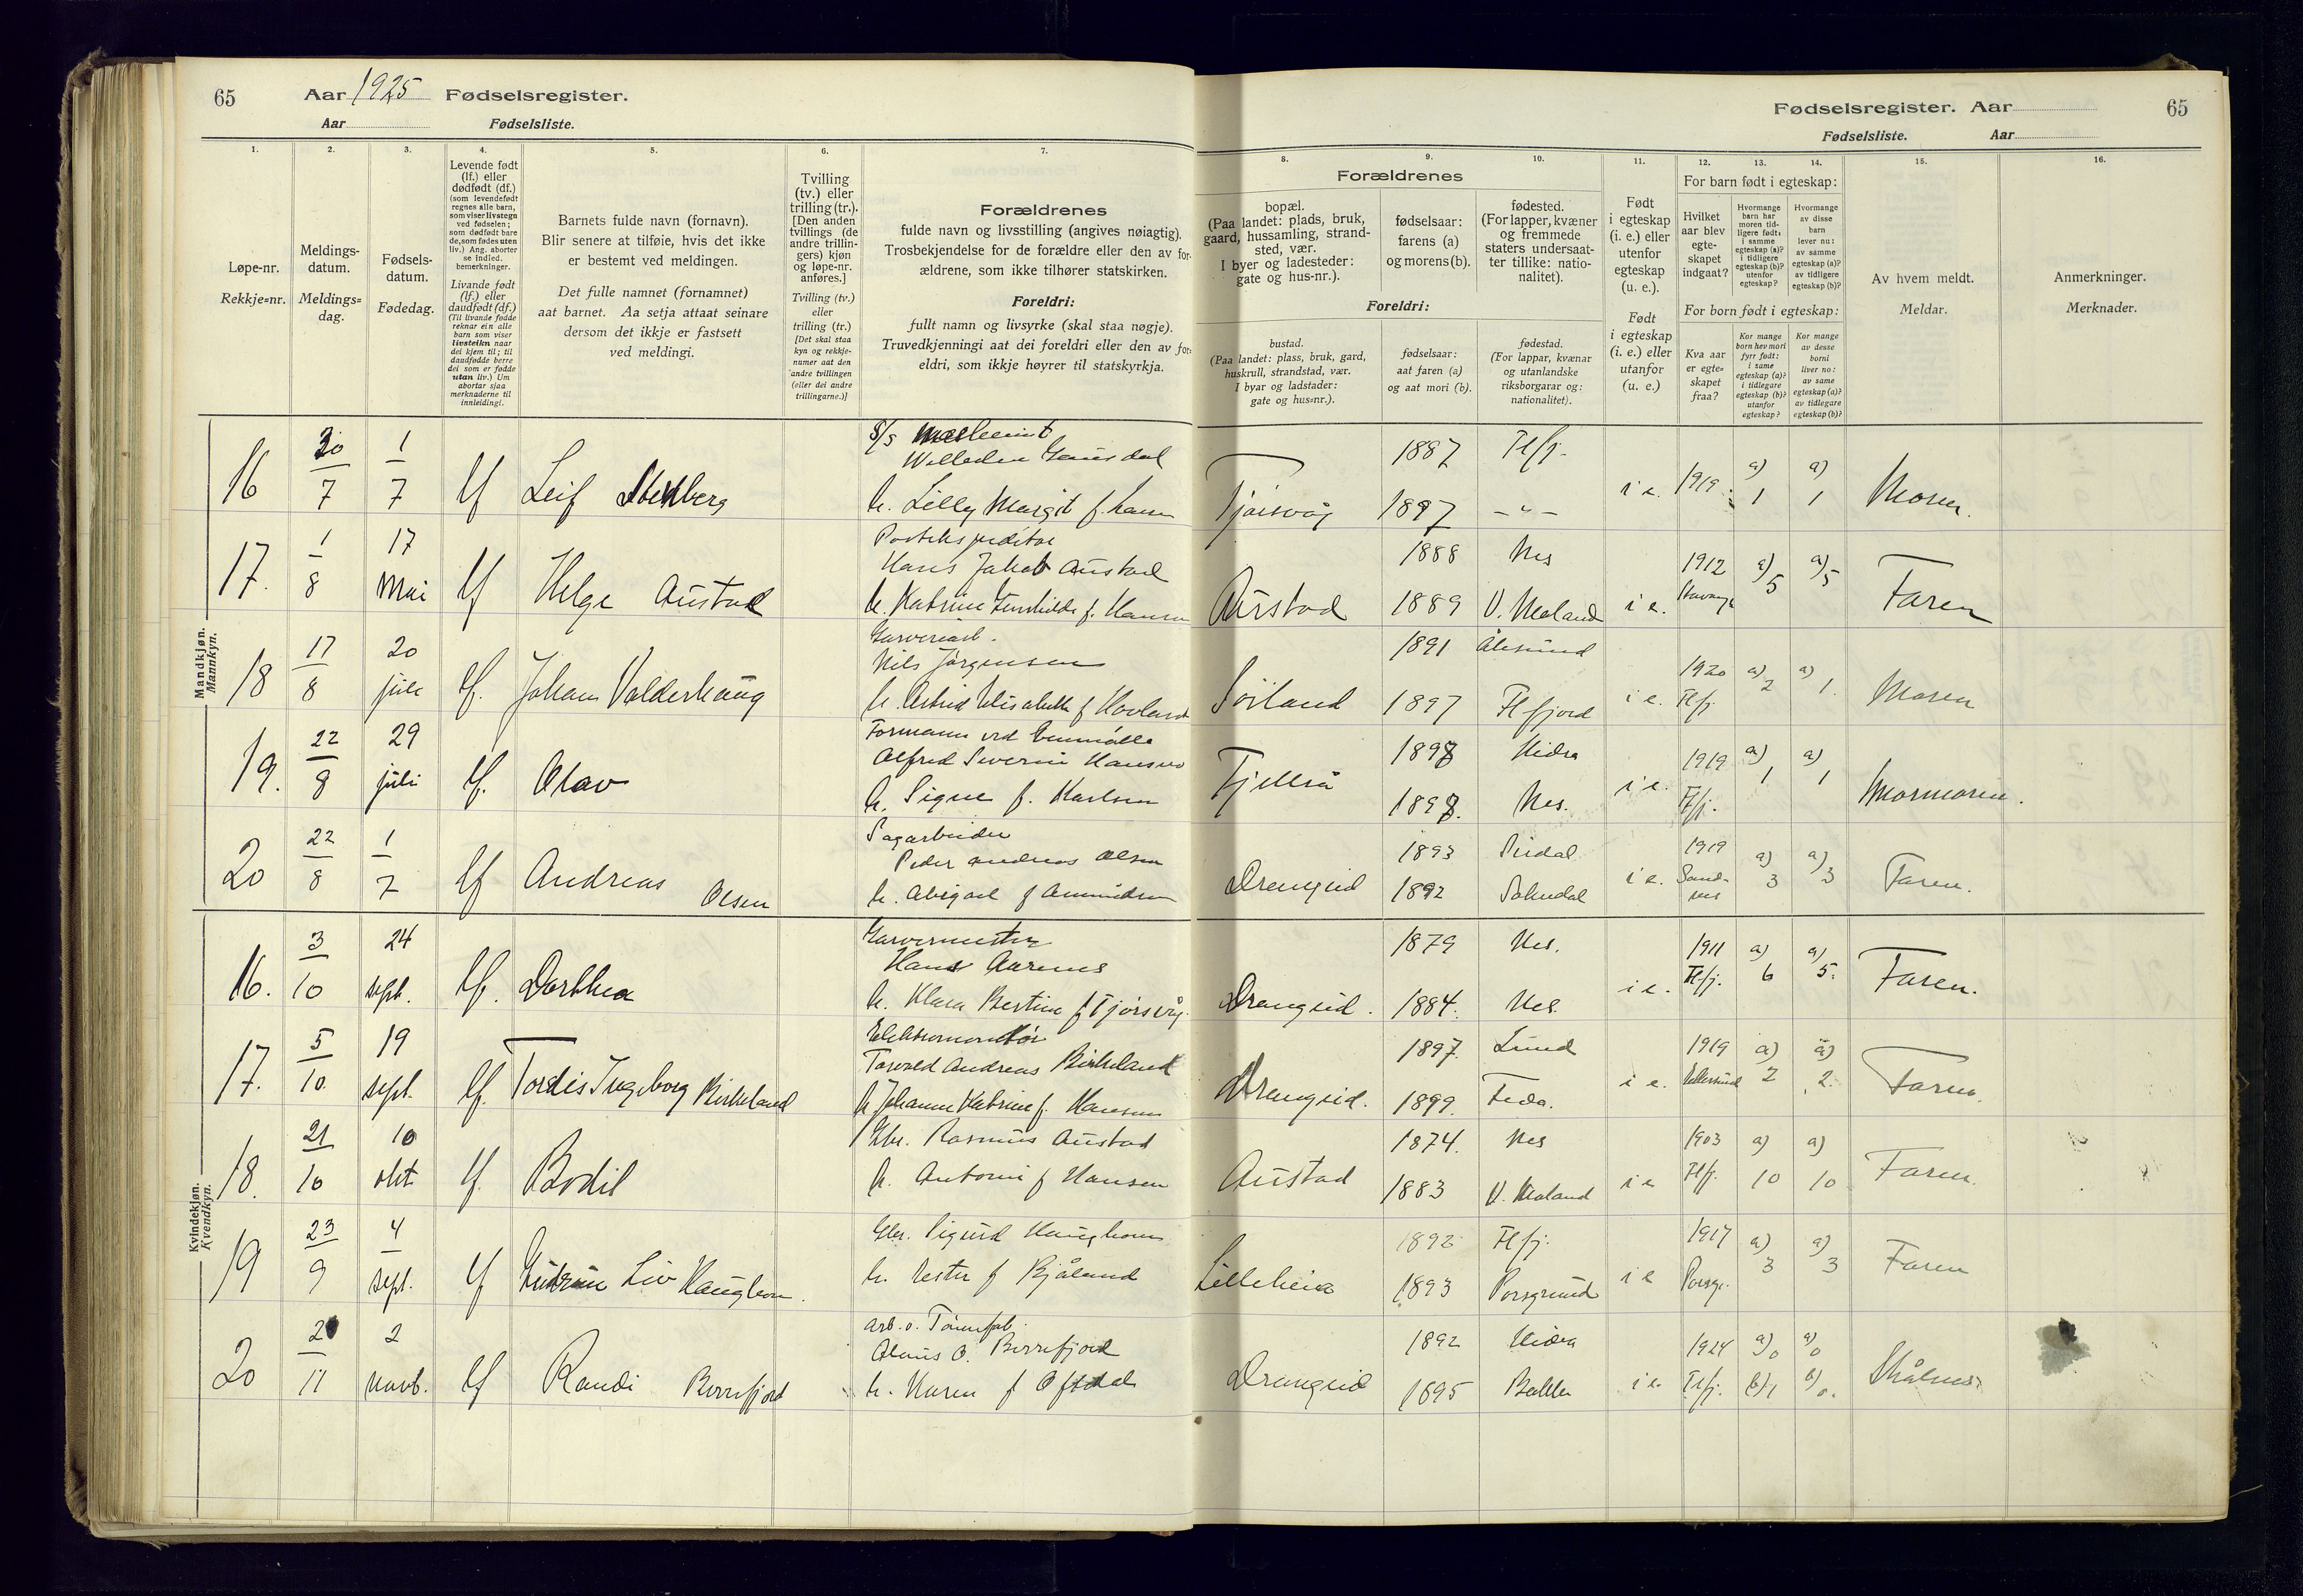 65
Aar 1925 Fødselsregister.
Aar Fødselsliste.
1.
2.
3.
4.
5.
6.
7.
Løpe-nr.
Rekkje=nr.
Meldings-
datum.
Meldings=
dag.
Fødsels-
datum.
Fødedag.
Levende født
(lf.) eller
dødfødt (df.)
(som levendefødt
regnes alle barn,
som viser livstegn
ved fødselen;
som dødfødt bare
de, som fødes uten
liv.) Ang. aborter
se indled.
bemerkninger.
Livande født
(lf.) eller
daudfødt (df.)
(Til livande fødde
reknar ein alle
barn som viser
livsteikn naar
dei kjem til; til
daudfødde berre
dei som er fødde
utan liv.) Um
abortar sjaa
merknaderne til
innleidingi.
Barnets fulde navn (fornavn).
Blir senere at tilføie, hvis det ikke
er bestemt ved meldingen.
Det fulle namnet (fornamnet)
aat barnet. Aa setja attaat seinare
dersom det ikkje er fastsett
ved meldingi.
Tvilling
(tv.) eller
trilling (tr.).
[Den anden
tvillings (de
andre trillin-
gers) kjøn
og løpe-nr.
anføres.]
Tvilling (tv.)
eller
trilling (tr.)
[Det skal staa
kyn og rekkje-
numer aat den
andre tvillingen
(eller dei andre
trillingarne.)]
Forældrenes
fulde navn og livsstilling (angives nøiagtig).
Trosbekjendelse for de forældre eller den av for-
ældrene, som ikke tilhører statskirken.
Foreldri:
fullt namn og livsyrke (skal staa nøgje).
Truvedkjenningi aat dei foreldri eller den av for-
eldri, som ikkje høyrer til statskyrkja.
Mandkjøn.
Mannkyn.
16 30/7 1/7 lf Leif Stenberg
h. Lilly Margit f.
17. 1/8 17 Mai lf Helge Austad
Hans Jakob Austad
18 17/8 20 juli lf. Johan Valderhaug
Nils Jørgensen
h. Astrid Elisabeth f Hovland
19. 22/8 29 juli lf. Olav
Formann ved
Alfred Severin Hansen
h. Signe f. Karlsen
20 22/8 1/7 lf Andreas Olsen
Sagarbeider
Peder Andreas Olsen
h. Abigael f Amundsen
Kvindekjøn.
Kvendkyn.
16. 3/10 24 sept. lf. Dorthea
Garvermester
Hans Aarenes
h. Klara Bertine f Tjørsvåg
17. 5/10 19 sept. lf. Tordis Ingeborg Birkeland
Elektromontør
Torvald Andreas Birkeland
h Johanne Katrine f. Hansen
18. 21/10 10 okt lf Bodil
Gbr. Rasmus Austad
h. Antonie f Hansen
19 23/9 4 sept. lf Gudrun Liv Haughom
Gbr. Sigurd Haughom
h. Ester f Bjåland
20 11 2 novb. lf Randi Berrefjord
Olaus O. Berrefjord
h. Karen f Oftedal
Fødselsregister. Aar
65
Fødselsliste. Aar
8.
9.
10.
11.
12.
13.
14.
15.
16.
Forældrenes
bopæl.
(Paa landet: plads, bruk,
gaard, hussamling, strand-
sted, vær.
I byer og ladesteder:
gate og hus-nr.).
fødselsaar:
farens (a)
og morens (b).
fødested.
(For lapper, kvæner
og fremmede
staters undersaat-
ter tillike: natio-
nalitet).
Foreldri:
bustad.
(Paa landet: plass, bruk, gard,
huskrull, strandstad, vær.
I byar og ladstader:
gate og hus=nr.).
fødselsaar:
aat faren (a)
og aat mori (b).
fødestad.
(For lappar, kvænar
og utanlandske
riksborgarar og:
nationalitet).
Født
i egteskap
(i. e.) eller
utenfor
egteskap
(u. e.).
Født
i egteskap
(i. e.) eller
utanfor
(u. e.)
For barn født i egteskap:
Hvilket
aar blev
egte-
skapet
indgaat?
Hvormange
barn har
moren tid-
ligere født:
i samme
egteskap (a)?
i tidligere
egteskap (b)?
utenfor
egteskap?
Hvormange
av disse
barn
lever nu:
av samme
egteskap (a)?
av tidligere
egteskap (b)?
For born født i egteskap:
Kva aar
er egte=
skapet
fraa?
Kor mange
born hev mori
fyrr født:
i same
egteskap (a)?
i tidlegare
egteskap (b)?
utanfor
egteskap?
Kor mange
av desse
borni
liver no:
av same
egteskap (a)?
av tidlegare
egteskap (b)?
Av hvem meldt.
Meldar.
Anmerkninger.
Merknader.
1887 Flfj.
Tjørsvåg 1897 — " — i e. 1919. a) 1 a) 1 Moren.
1888 Nes
Austad 1889 i e. 1912 a) 5 a) 5 Faren
1891 Ålesund
Sørland 1897 Fl fjord i e. 1920 Flfj. a) 2 a) 1. Moren
1898 Hidra
Fjellså 1898. Nes. i e. 1919 Flfj. a) 1 a) 1 Mormoren.
1893 Sirdal
Drangeid 1892 Sokndal i e. 1919 Sand-nes a) 3 a) 3 Faren.
1879 Nes.
Drangeid. 1884. Nes. i e. 1911 Flfj. a) 6 a) 5. Faren.
1897. Lund
Drangeid. 1899. Feda. i e. 1919 a) 2 a) 2. Faren.
1874. Nes
Austad 1883 i e 1903 Flfj. a) 10 a) 10 Faren.
1892 Flfj.
Lilleheia 1893 Porsgrund i e 1917 Porsgr. a) 3 a) 3 Faren
1892 Hidra
Drangeid 1895 Bakke i e. 1924 Flfj. a) 0 b) 1 a) 0 b) 0.